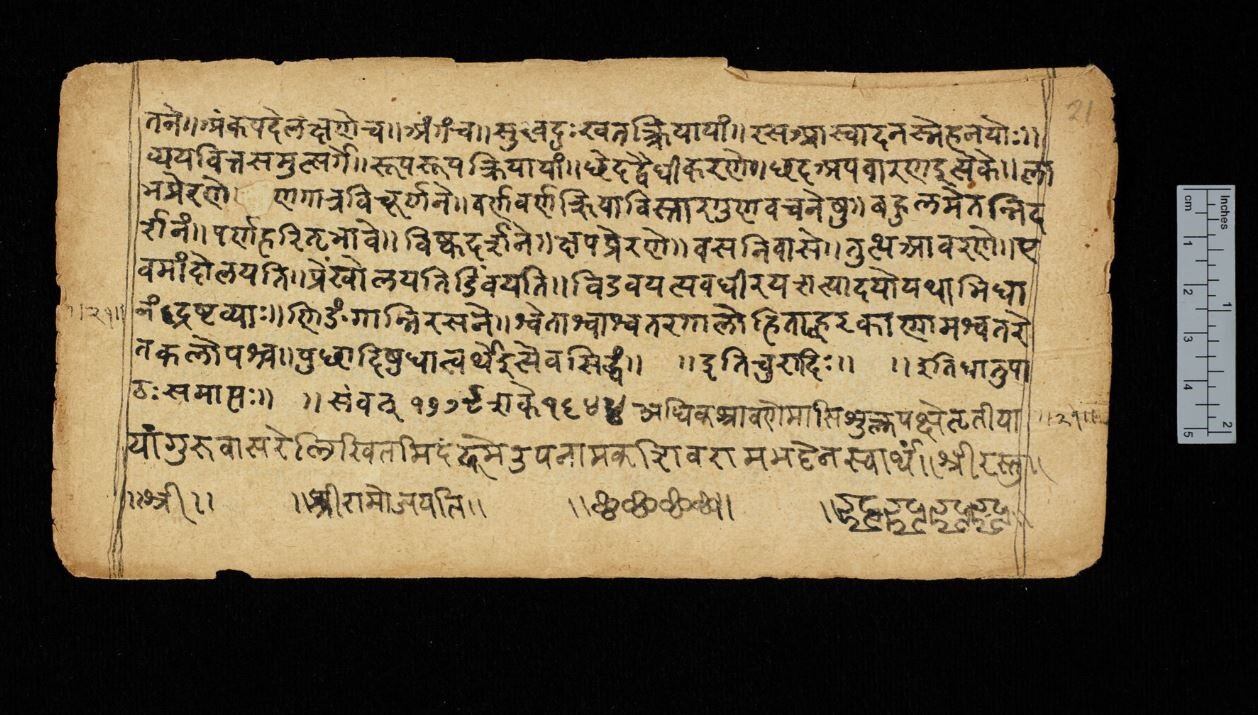 तने॥अंकपदेलक्षणेच॥अंगंच॥सुखदुःखतत्क्रियायां॥रसआस्वादनस्नेहनयोः॥
व्ययवित्तसमुत्सर्गे॥रूपरूपक्रियायां॥छेदद्वैधीकरणे॥छदअपवारणइत्येके॥ला
भप्रेरणे॥ व्रणगात्रविचूर्णने॥वर्णवर्णक्रियाविस्तारगुणवचनेषु॥बहुलमेतन्निद
र्शनं॥पर्णहरितभावे॥विष्कदर्शने॥क्षपप्रेरणे॥वसनिवासे॥तुत्थआवरणे॥ए
वमांदोलयति॥प्रेंखोलयतिडिंवयति॥विडंवयत्यवधीरयत्यादयोयथाभिधा
नंद्रष्टव्याः॥णिङंगान्निरसने॥श्वेताश्वाश्वतरगालोहिताह्वरकाणामश्वतरे
तकलोपश्च॥पुच्छादिषुधात्वर्थइत्येवसिद्धं॥ ॥इतिचुरादिः॥ ॥इतिधातुपा
ठःसमाप्तः॥ ॥संवत् १७७९शके१६४४अधिकश्रावणेमासिशुक्लपक्षेतृतीया
यांगुरुवासरेलिखितमिदं नामक रामभट्टेनस्वार्थं॥श्रीरस्तु॥
॥श्री॥ ॥श्रीरामोजयति॥ ॥छ॥छ॥छ॥छ॥
॥२१॥
॥२१॥
21
Inches
cm
1
2
3
4
5
1
2